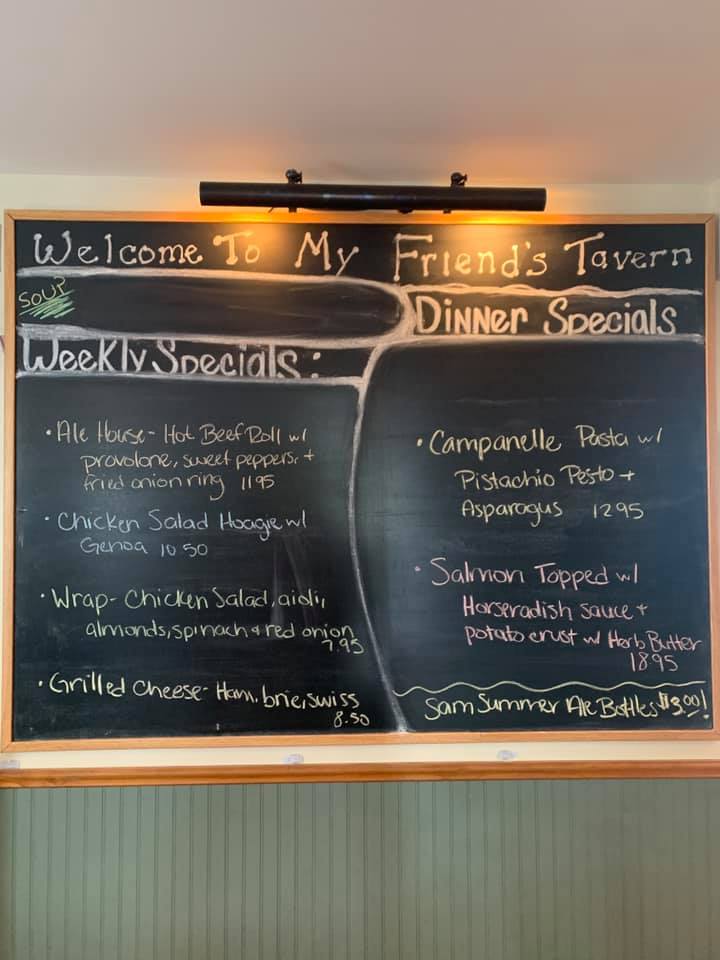 Welcome To My Friend's Tavern
SOUP
Weekly Specials:
• Ale House- Hot Beef Roll w/
provolone, sweet peppers, +
fried onion ring 1195
• Chicken Salad Hoagie w/
Genoa 10 50
• Wrap- Chicken Salad, aioli,
almonds, spinach + red onion
7.95
• Grilled Cheese- Ham, brie, swiss
8.50
Dinner Specials
• Campanelle Pasta w/
Pistachio Pesto +
Asparagus 1295
• Salmon Topped w/
Horseradish sauce +
potato crust w/ Herb Butter
1895
Sam Summer Ale Bottles $3.00!